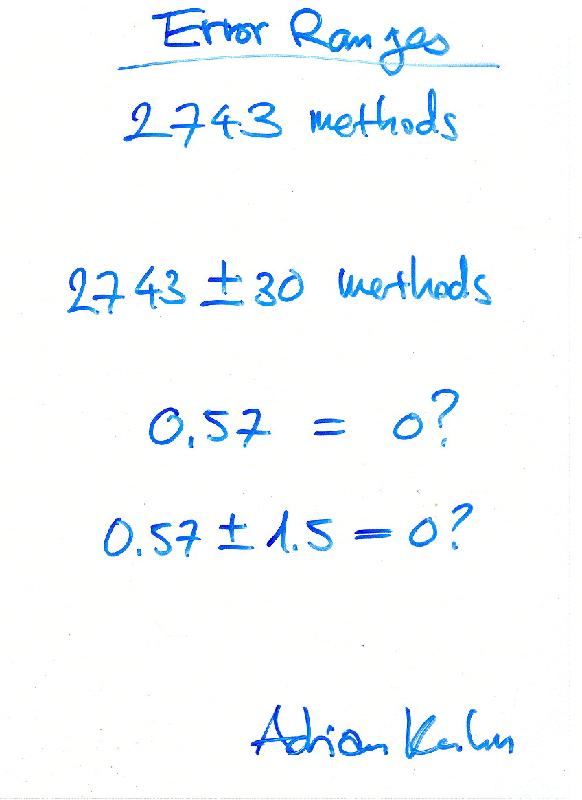 Error Ranges
2743 methods
2743 ± 30 methods
0.57 = 0?
0.57 ± 1.5 = 0?
Adrian